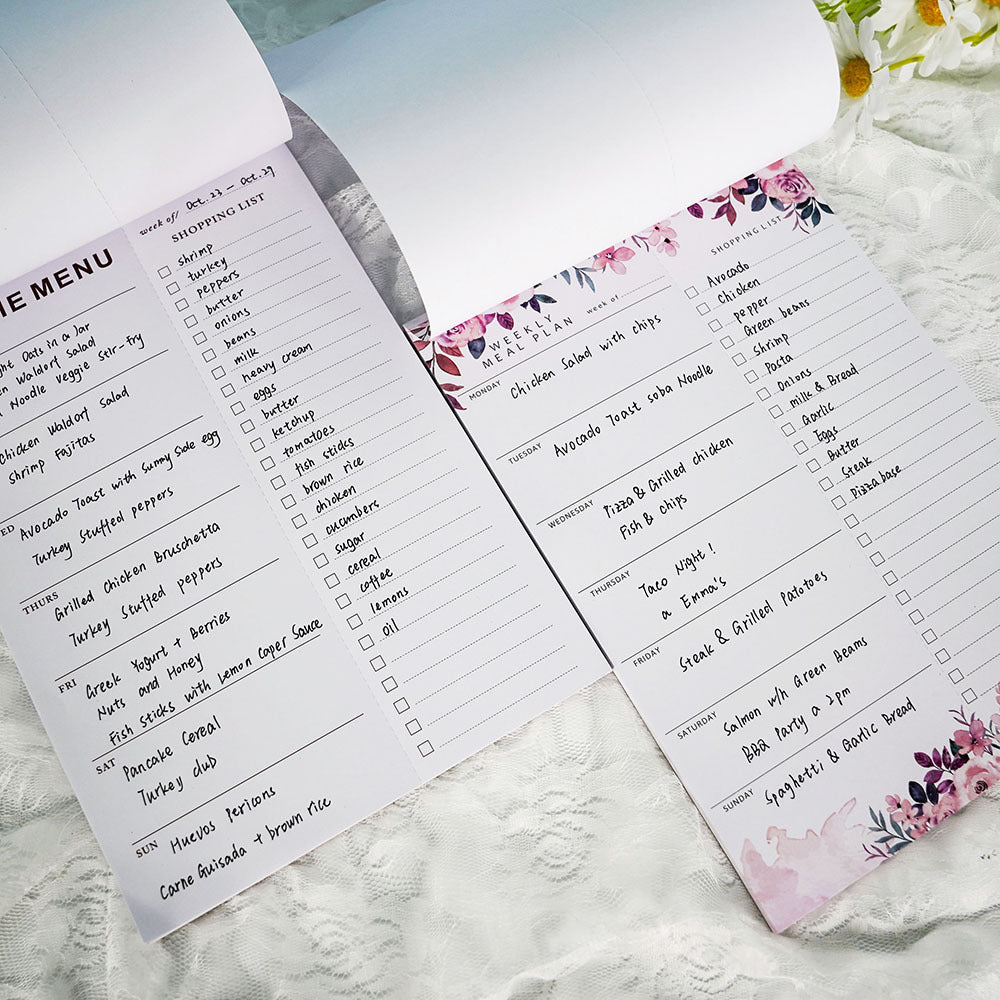 week of/ Oct. 23 - Oct. 29
MENU
SHOPPING LIST
Oats in a Jar
Waldorf Salad
Noodle Veggie Stir-fry
Chicken Waldorf Salad
Shrimp Fajitas
Avocado Toast with Sunny Side egg
Turkey Stuffed peppers
THURS
Grilled Chicken Bruschetta
Turkey Stuffed peppers
FRI
Greek Yogurt + Berries
Nuts and Honey
Fish Sticks with Lemon Caper Sauce
SAT
Pancake Cereal
Turkey club
SUN
Huevos Pericons
Carne Guisada + brown rice
shrimp
turkey
peppers
butter
onions
beans
milk
heavy cream
eggs
butter
ketchup
tomatoes
fish sticks
brown rice
chicken
cucumbers
sugar
cereal
coffee
lemons
oil
WEEKLY
MEAL PLAN
week of
MONDAY
Chicken Salad with chips
TUESDAY
Avocado Toast soba Noodle
WEDNESDAY
Pizza & Grilled chicken
Fish & chips
THURSDAY
Taco Night!
a Emma's
FRIDAY
Steak & Grilled Patotoes
SATURDAY
Salmon w/h Green Beans
BBQ Party a 2pm
SUNDAY
Spaghetti & Garlic Bread
SHOPPING LIST
Avocado
Chicken
pepper
Green beans
Shrimp
Pasta
Onions
milk & Bread
Garlic
Eggs
Butter
Steak
Pizza base